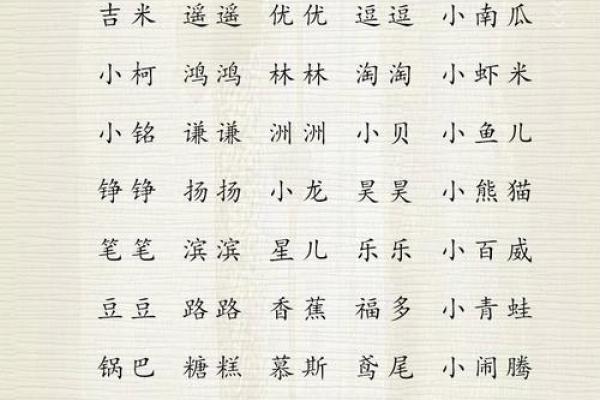 吉米 遥遥 优优 逗逗 小南瓜
小柯 鸿鸿 林林 淘淘 小虾米
小铭 谦谦 洲洲 小贝 小鱼儿
铮铮 扬扬 小龙 昊昊 小熊猫
笔笔 滨滨 星儿 乐乐 小百威
豆豆 路路 香蕉 福多 小青蛙
锅巴 糖糕 慕斯 鸢尾 小闹腾